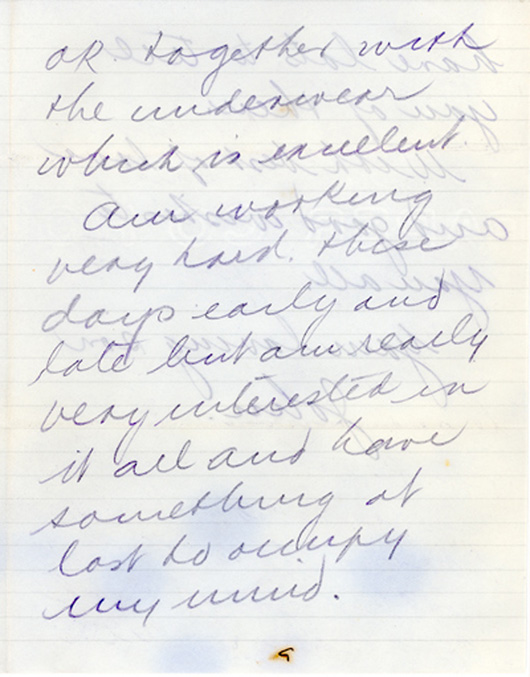 OR together with
the underwear
which is excellent.
Am working
very hard these
days early and
late but am really
very interested in
it all and have
something at
last to occupy
my mind.